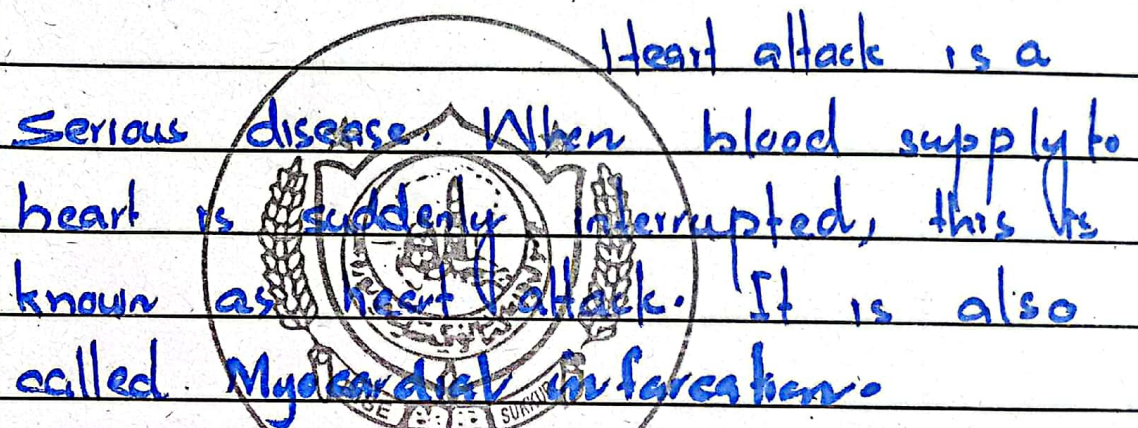 Heart attack is a
serious disease. When blood supply to
heart is suddenly interrupted, this is
known as heart attack. It is also
called Myocardial infarcation.
SUKKUR